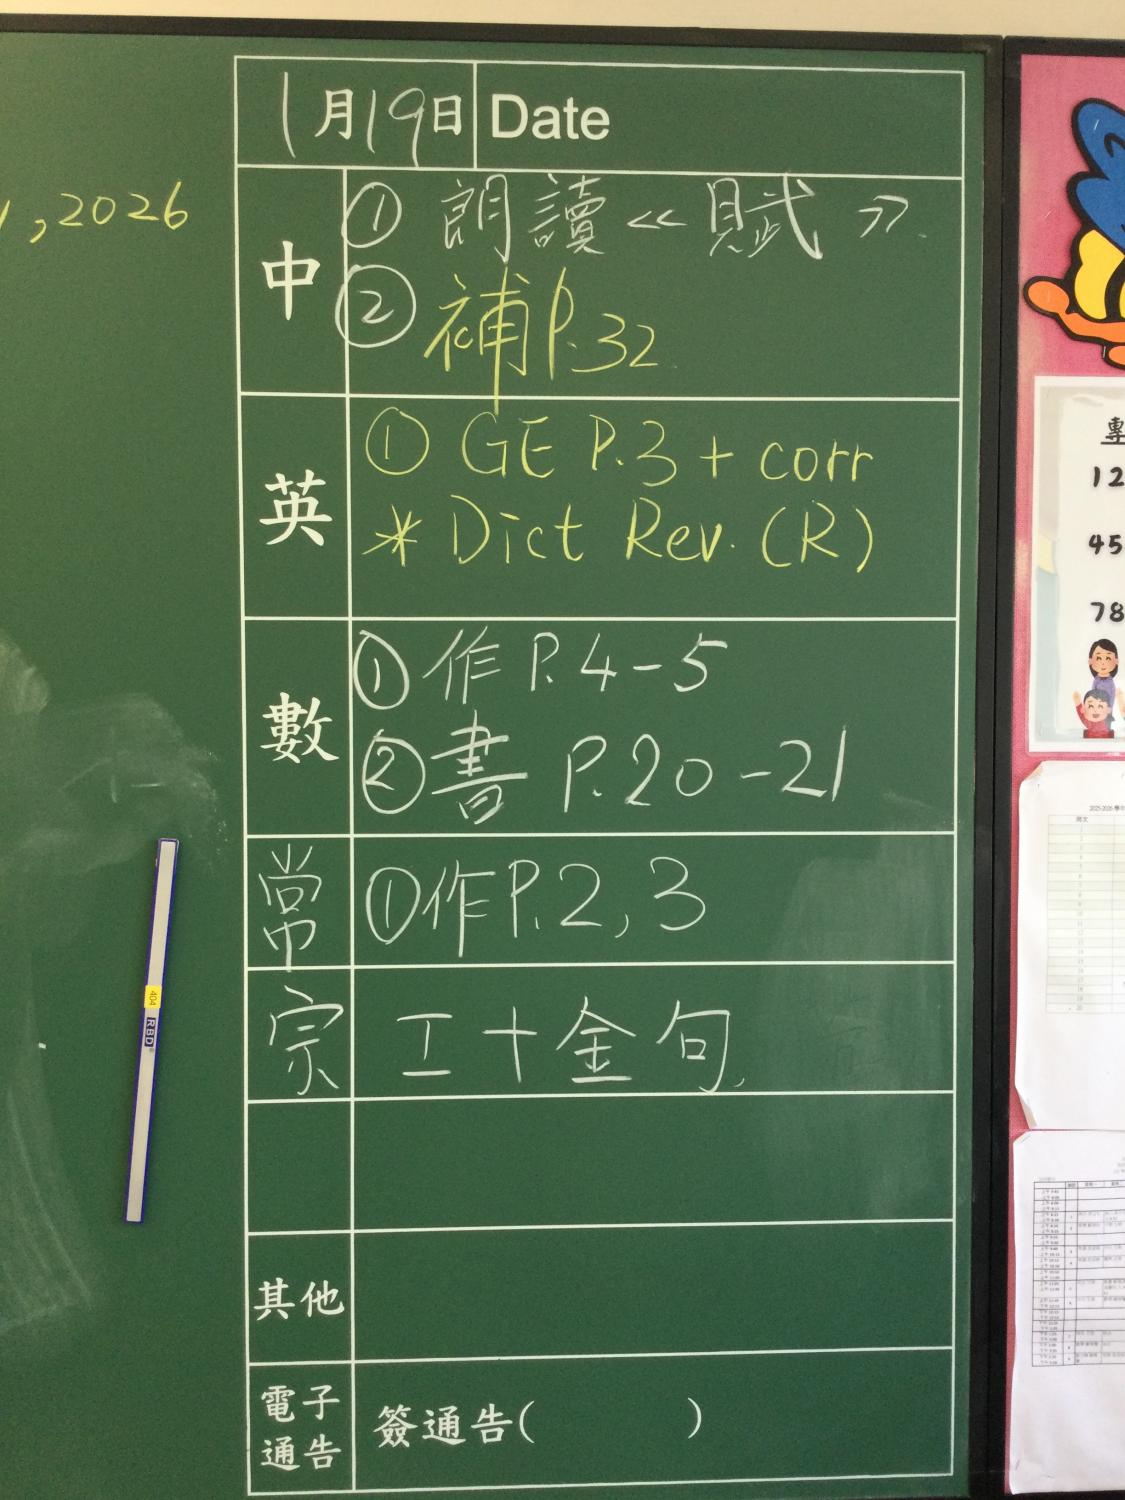 1月19日 Date
, 2026
中
① 朗讀《賦》.
② 補P.32
英
① GE P.3 + corr
* Dict Rev. (R)
數
① 作 P.4-5
② 書 P.20-21
常
① 作P.2, 3
宗
工十金句
其他
電子通告
簽通告(          )
404
RBD
12
45
78